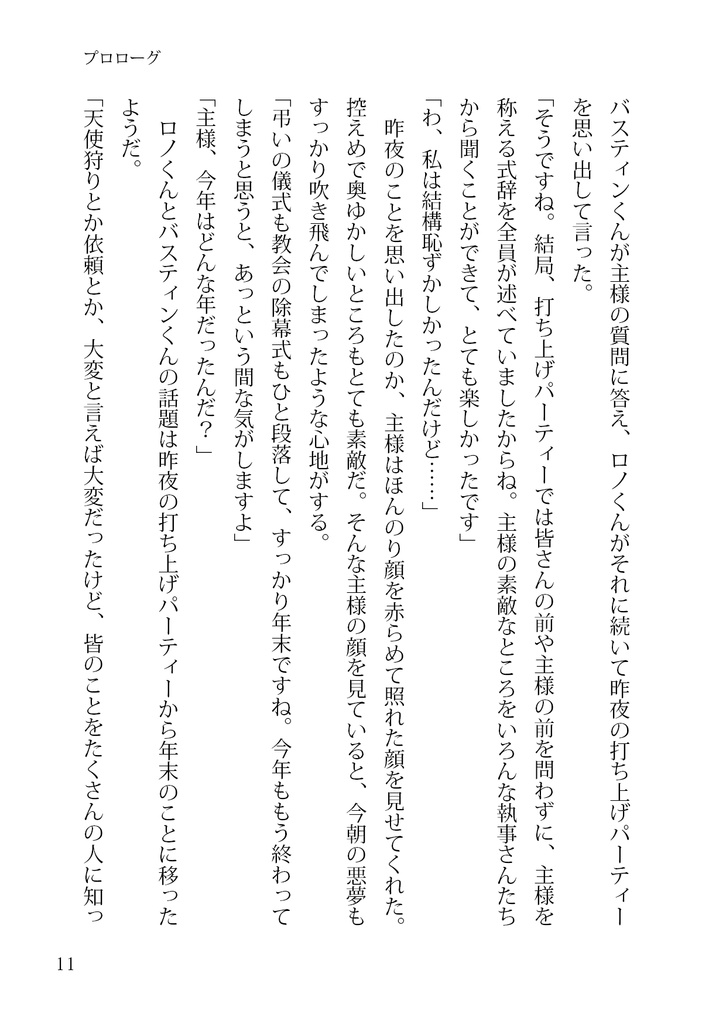 プロローグ
バスティンくんが主様の質問に答え、ロノくんがそれに続いて昨夜の打ち上げパーティー
を思い出して言った。
「そうですね。結局、打ち上げパーティーでは皆さんの前や主様の前を問わずに、主様を
称える式辞を全員が述べていましたからね。主様の素敵なところをいろんな執事さんたち
から聞くことができて、とても楽しかったです」
「わ、私は結構恥ずかしかったんだけど……」
　昨夜のことを思い出したのか、主様はほんのり顔を赤らめて照れた顔を見せてくれた。
控えめで奥ゆかしいところもとても素敵だ。そんな主様の顔を見ていると、今朝の悪夢も
すっかり吹き飛んでしまったような心地がする。
「弔いの儀式も教会の除幕式もひと段落して、すっかり年末ですね。今年ももう終わって
しまうと思うと、あっという間な気がしますよ」
「主様、今年はどんな年だったんだ？」
　ロノくんとバスティンくんの話題は昨夜の打ち上げパーティーから年末のことに移った
ようだ。
「天使狩りとか依頼とか、大変と言えば大変だったけど、皆のことをたくさんの人に知っ
11